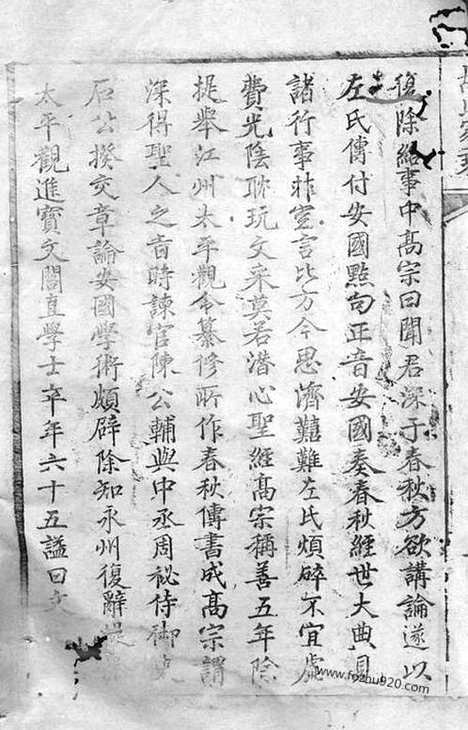 復除給事中高宗曰聞君深于春秋方欲講論遂以
左氏傳付安國點句正音安國奏春秋經世大典見
諸行事非空言比方今思濟艱難左氏煩碎不宜處
費光陰耽玩文采莫若潛心聖經高宗稱善五年除
提舉江州太平觀令纂修所作春秋傳書成高宗謂
深得聖人之旨時諫官陳公輔與中丞周秘侍御
石公揆交章論安國學術頗僻除知永州復辭提
太平觀進寶文閣直學士卒年六十五謚曰文
www.fozhu920.com